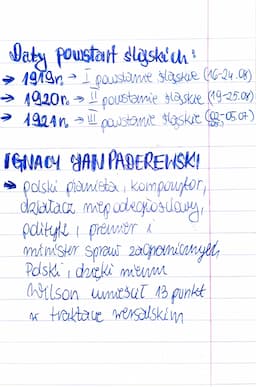 Daty powstań śląskich:
→ 1919r. → I powstanie śląskie (16-24.08)
→ 1920r. → II powstanie śląskie (19-25.08)
→ 1921r. → III powstanie śląskie (02-05.07)
IGNACY JAN PADEREWSKI
→ polski pianista, kompozytor,
działacz niepodległościowy,
polityk, premier i
minister spraw zagranicznych
Polski, dzięki niemu
Wilson umieścił 13 punkt
w traktacie wersalskim